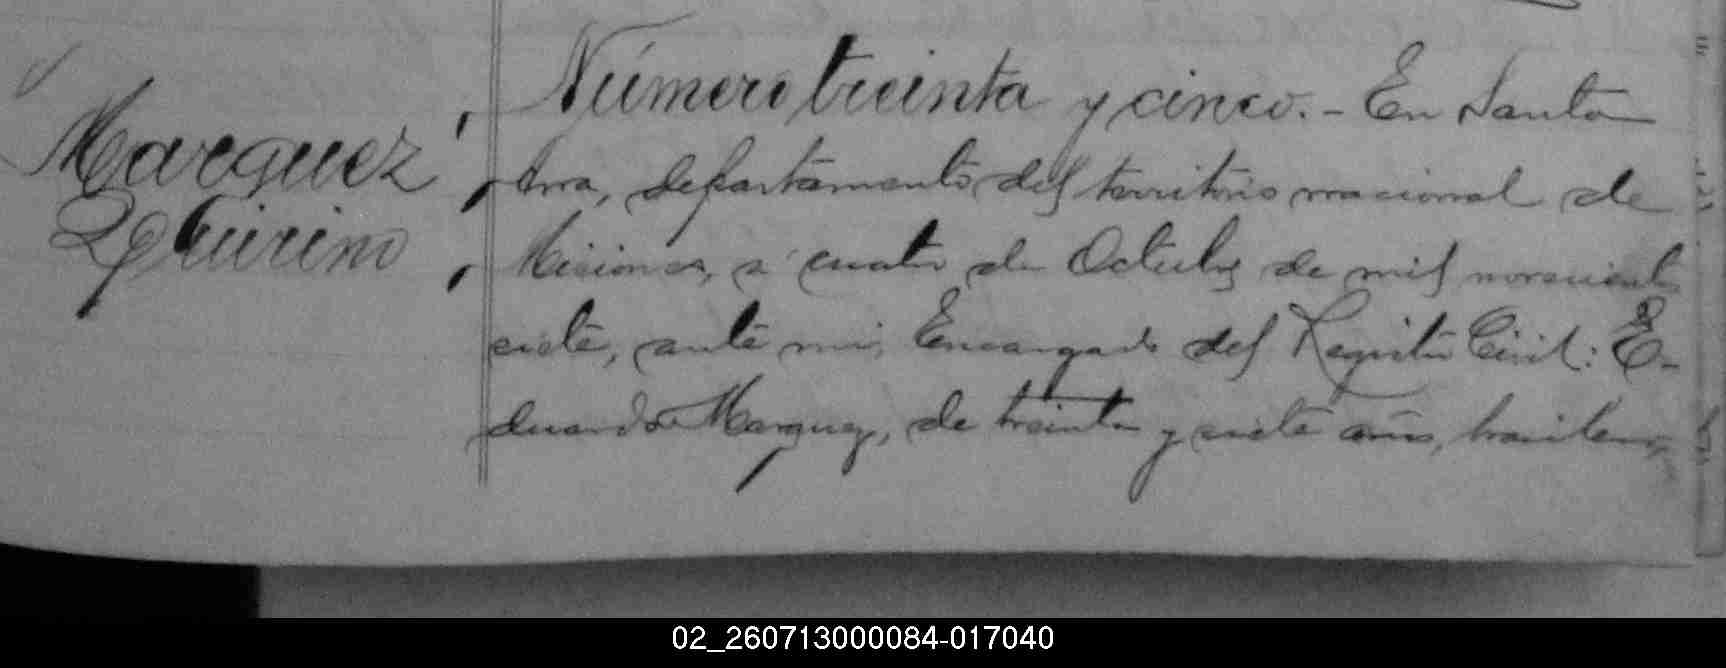 Marquez
Quirino
Número treinta y cinco. - En Santa
Ana, departamento del territorio nacional de
Misiones, a cuatro de Octubre de mil novecientos
siete, ante mi, Encargado del Registro Civil: E-
duardo Marquez, de treinta y siete años, brasilero,
02_260713000084-017040